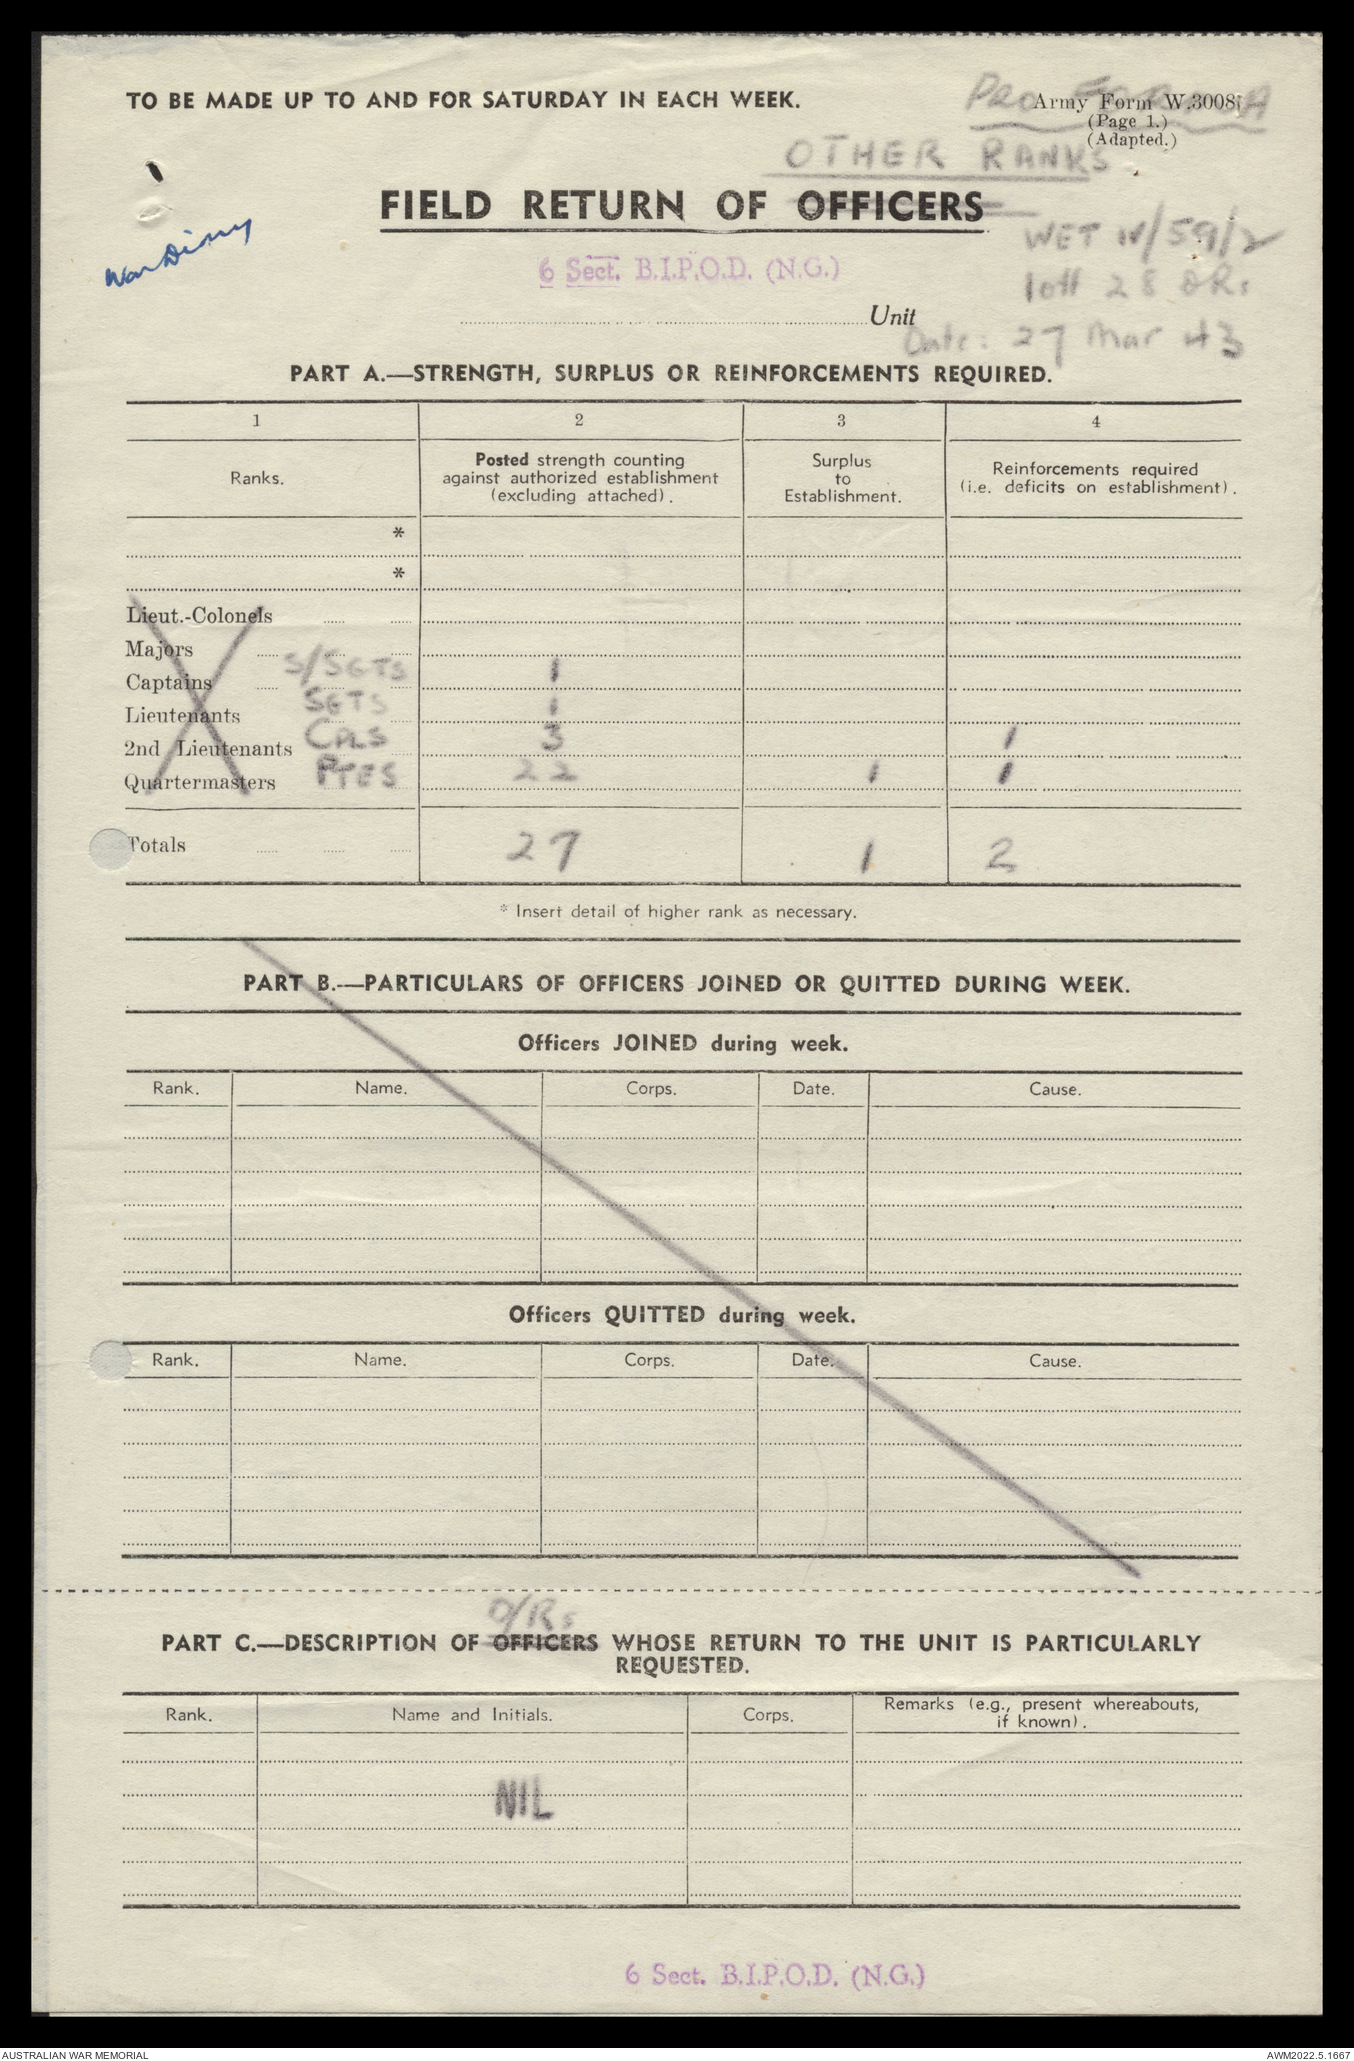 TO BE MADE UP TO AND FOR SATURDAY IN EACH WEEK.
PRO FORMA
Army Form W.3008
(Page 1.)
(Adapted.)
OTHER RANKS
FIELD RETURN OF OFFICERS
War Diary
WET IV/59/2
1off 28 ORs
6 Sect. B.I.P.O.D. (N.G.)
Unit
Date: 27 Mar 43
PART A.—STRENGTH, SURPLUS OR REINFORCEMENTS REQUIRED.
1 2 3 4
Ranks. Posted strength counting against authorized establishment (excluding attached). Surplus to Establishment. Reinforcements required (i.e. deficits on establishment).
*
*
Lieut.-Colonels
Majors
S/SGTS 1
Captains
SGTS 1
Lieutenants
CPLS 3 1
2nd Lieutenants
PTES 22 1 1
Quartermasters
Totals 27 1 2
* Insert detail of higher rank as necessary.
PART B.—PARTICULARS OF OFFICERS JOINED OR QUITTED DURING WEEK.
Officers JOINED during week.
Rank. Name. Corps. Date. Cause.
Officers QUITTED during week.
Rank. Name. Corps. Date. Cause.
O/Rs
PART C.—DESCRIPTION OF OFFICERS WHOSE RETURN TO THE UNIT IS PARTICULARLY
REQUESTED.
Rank. Name and Initials. Corps. Remarks (e.g., present whereabouts, if known).
NIL
6 Sect. B.I.P.O.D. (N.G.)
AUSTRALIAN WAR MEMORIAL AWM2022.5.1667